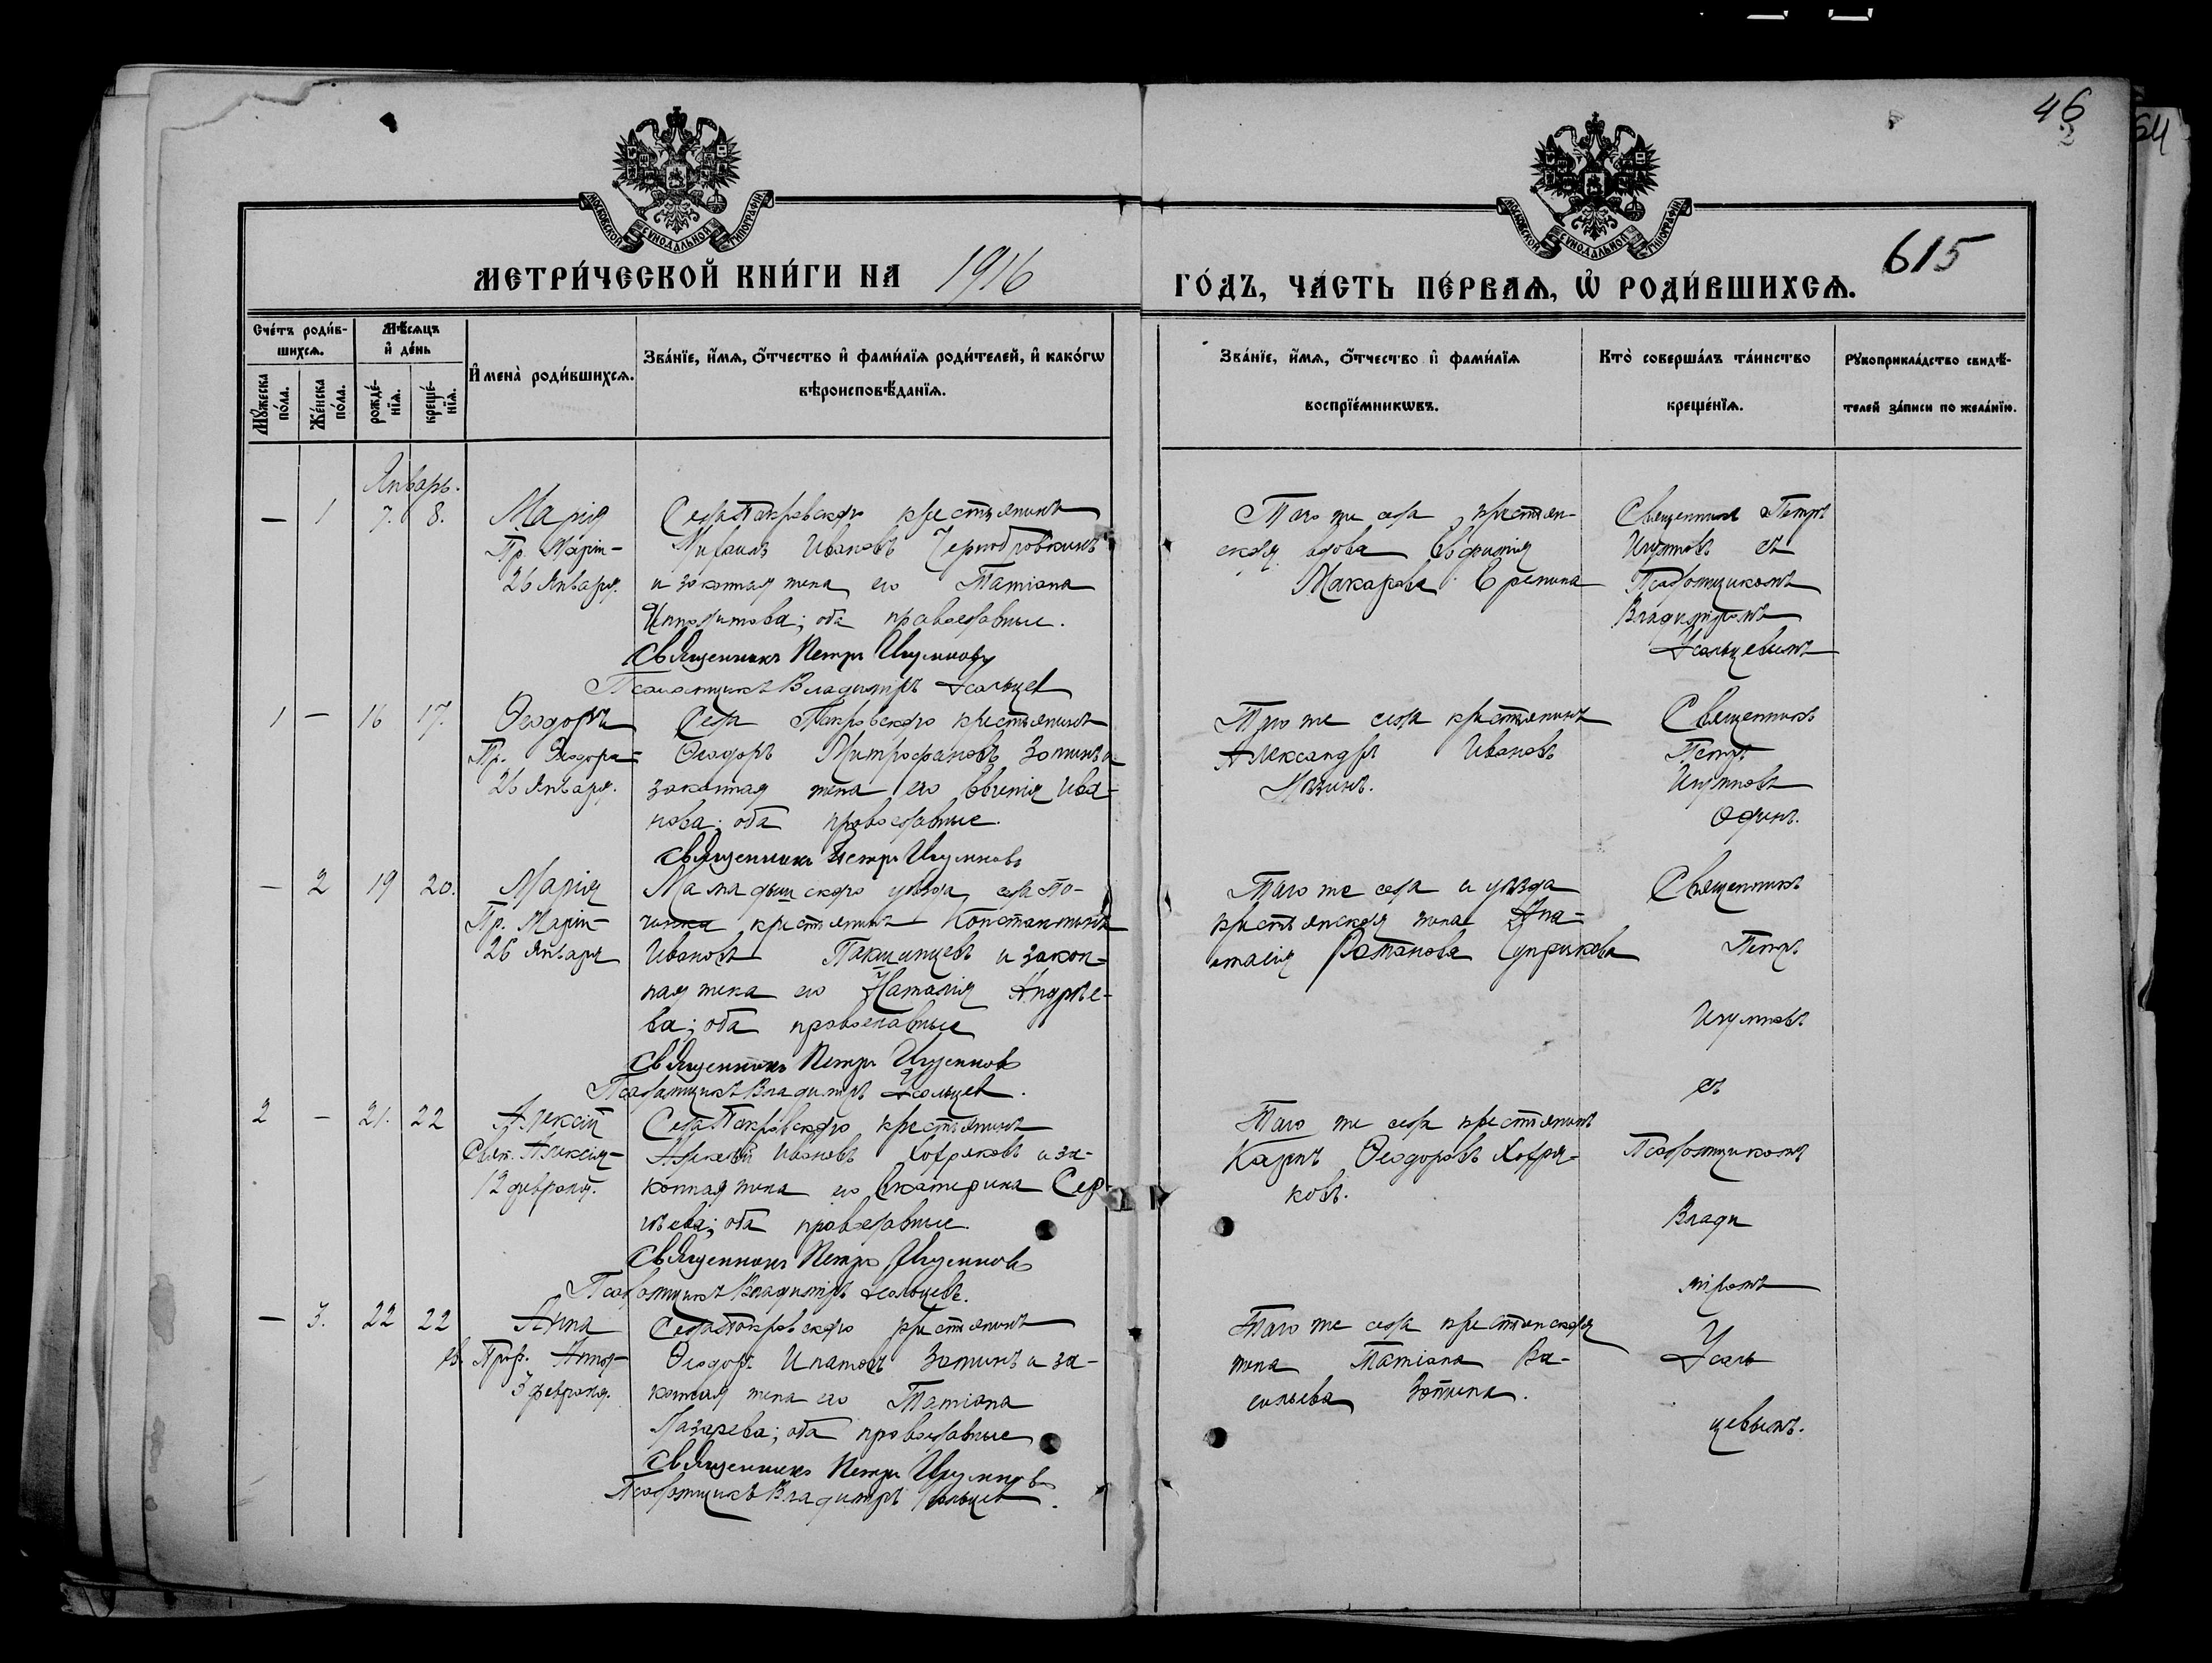 46
2
54
МОСКОВСКОЙ СѴНОДАЛЬНОЙ ТИПОГРАФІИ
МОСКОВСКОЙ СѴНОДАЛЬНОЙ ТИПОГРАФІИ
615
МЕТРИ́ЧЕСКОЙ КНИ́ГИ НА 1916 ГО́ДЪ, ЧА́СТЬ ПЕ́РВАѦ, Ѽ РОДИ́ВШИХСѦ.
Сче́тъ роди́в-
шихсѧ.
Мꙋ́жеска по́ла.
Же́нска по́ла.
Мѣ́сѧцъ
и҆ де́нь
рожде́-
нїѧ.
креще́-
нїѧ.
И҆мена̀ роди́вшихсѧ.
Зва́нїе, и҆́мѧ, ѻ҆́тчество и҆ фами́лїѧ роди́телей, и҆ како́гѡ
вѣроисповѣ́данїѧ.
Зва́нїе, и҆́мѧ, ѻ҆́тчество и҆ фами́лїѧ
воспрїе́мникѡвъ.
Кто̀ соверша́лъ та́инство
креще́нїѧ.
Рꙋкоприкла́дство свидѣ́-
телей за́писи по жела́нїю.
Январь.
— 1 7. 8. Марія
Пр. Маріи-
26 Января.
Села Покровскаго крестьянинъ
Михаилъ Ивановъ Чернобровкинъ
и законная жена его Татіана
Ипполитова; оба православные.
Священникъ Петръ Игумновъ
Псаломщикъ Владиміръ Усольцев
Того же села крестьян-
ская вдова Евфимія
Макарова Еремина
Священник Петръ
Игумновъ съ
Псаломщикомъ
Владиміромъ
Усольцевымъ
1 — 16 17. Ѳеодоръ
Пр. Ѳеодора-
26 Января.
Села Покровскаго крестьянинъ
Ѳеодоръ Митрофановъ Зотинъ и
законная жена его Евгенія Ива-
нова; оба православные.
Священникъ Петръ Игумновъ
Того же села крестьянинъ
Александръ Ивановъ
Священникъ
Петръ
Игумновъ
Один.
— 2 19 20. Марія
Пр. Маріи-
26 Января
Мамадышскаго уѣзда, села По-
чинка крестьянинъ Константинъ
Ивановъ и закон-
ная жена его Наталія Андрѣе-
ва; оба православные
Священникъ Петръ Игумновъ
Псаломщикъ Владиміръ Усольцев.
Того же села и уѣзда
крестьянская жена Ана-
стасія
Священникъ
Петръ
Игумновъ
съ
2 — 21. 22 Алексій
Свят. Алексія-
12 февраля.
Села Покровскаго крестьянинъ
Алексѣй Ивановъ Ховряковъ и за-
конная жена его Екатерина Сер-
гѣева; оба православные.
Священникъ Петръ Игумновъ
Псаломщикъ Владиміръ Усольцевъ.
Того же села крестьянинъ
Карпъ Ѳеодоровъ Ховря-
ковъ.
Псаломщикомъ
Влади
міромъ
— 3. 22 22 Анна
Прор. Анны-
3 февраля.
Села Покровскаго крестьянинъ
Ѳеодоръ Ипатовъ Зотинъ и за-
конная жена его Татіана
Лазарева; оба православные
Священникъ Петръ Игумновъ
Псаломщикъ Владиміръ Усольцев.
Того же села крестьянская
жена Татіана Ва-
сильева Зотина.
Усоль
цевымъ.